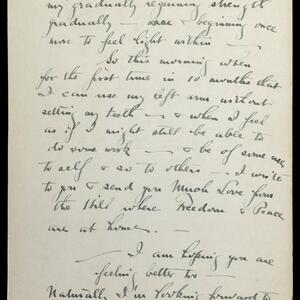 my gradually regaining strength
gradually — & beginning once
more to feel light within —
So this morning when
for the first time in 10 months that
I can use my left arm without
setting my teeth — & when I feel
as if I might still be able to
do some work — & be of some use
to self & so to others — I write
to you & send you Much Love from
the Hills where Freedom & Peace
are at home. —
— I am hoping you are
feeling better too —
Naturally I'm looking forward to